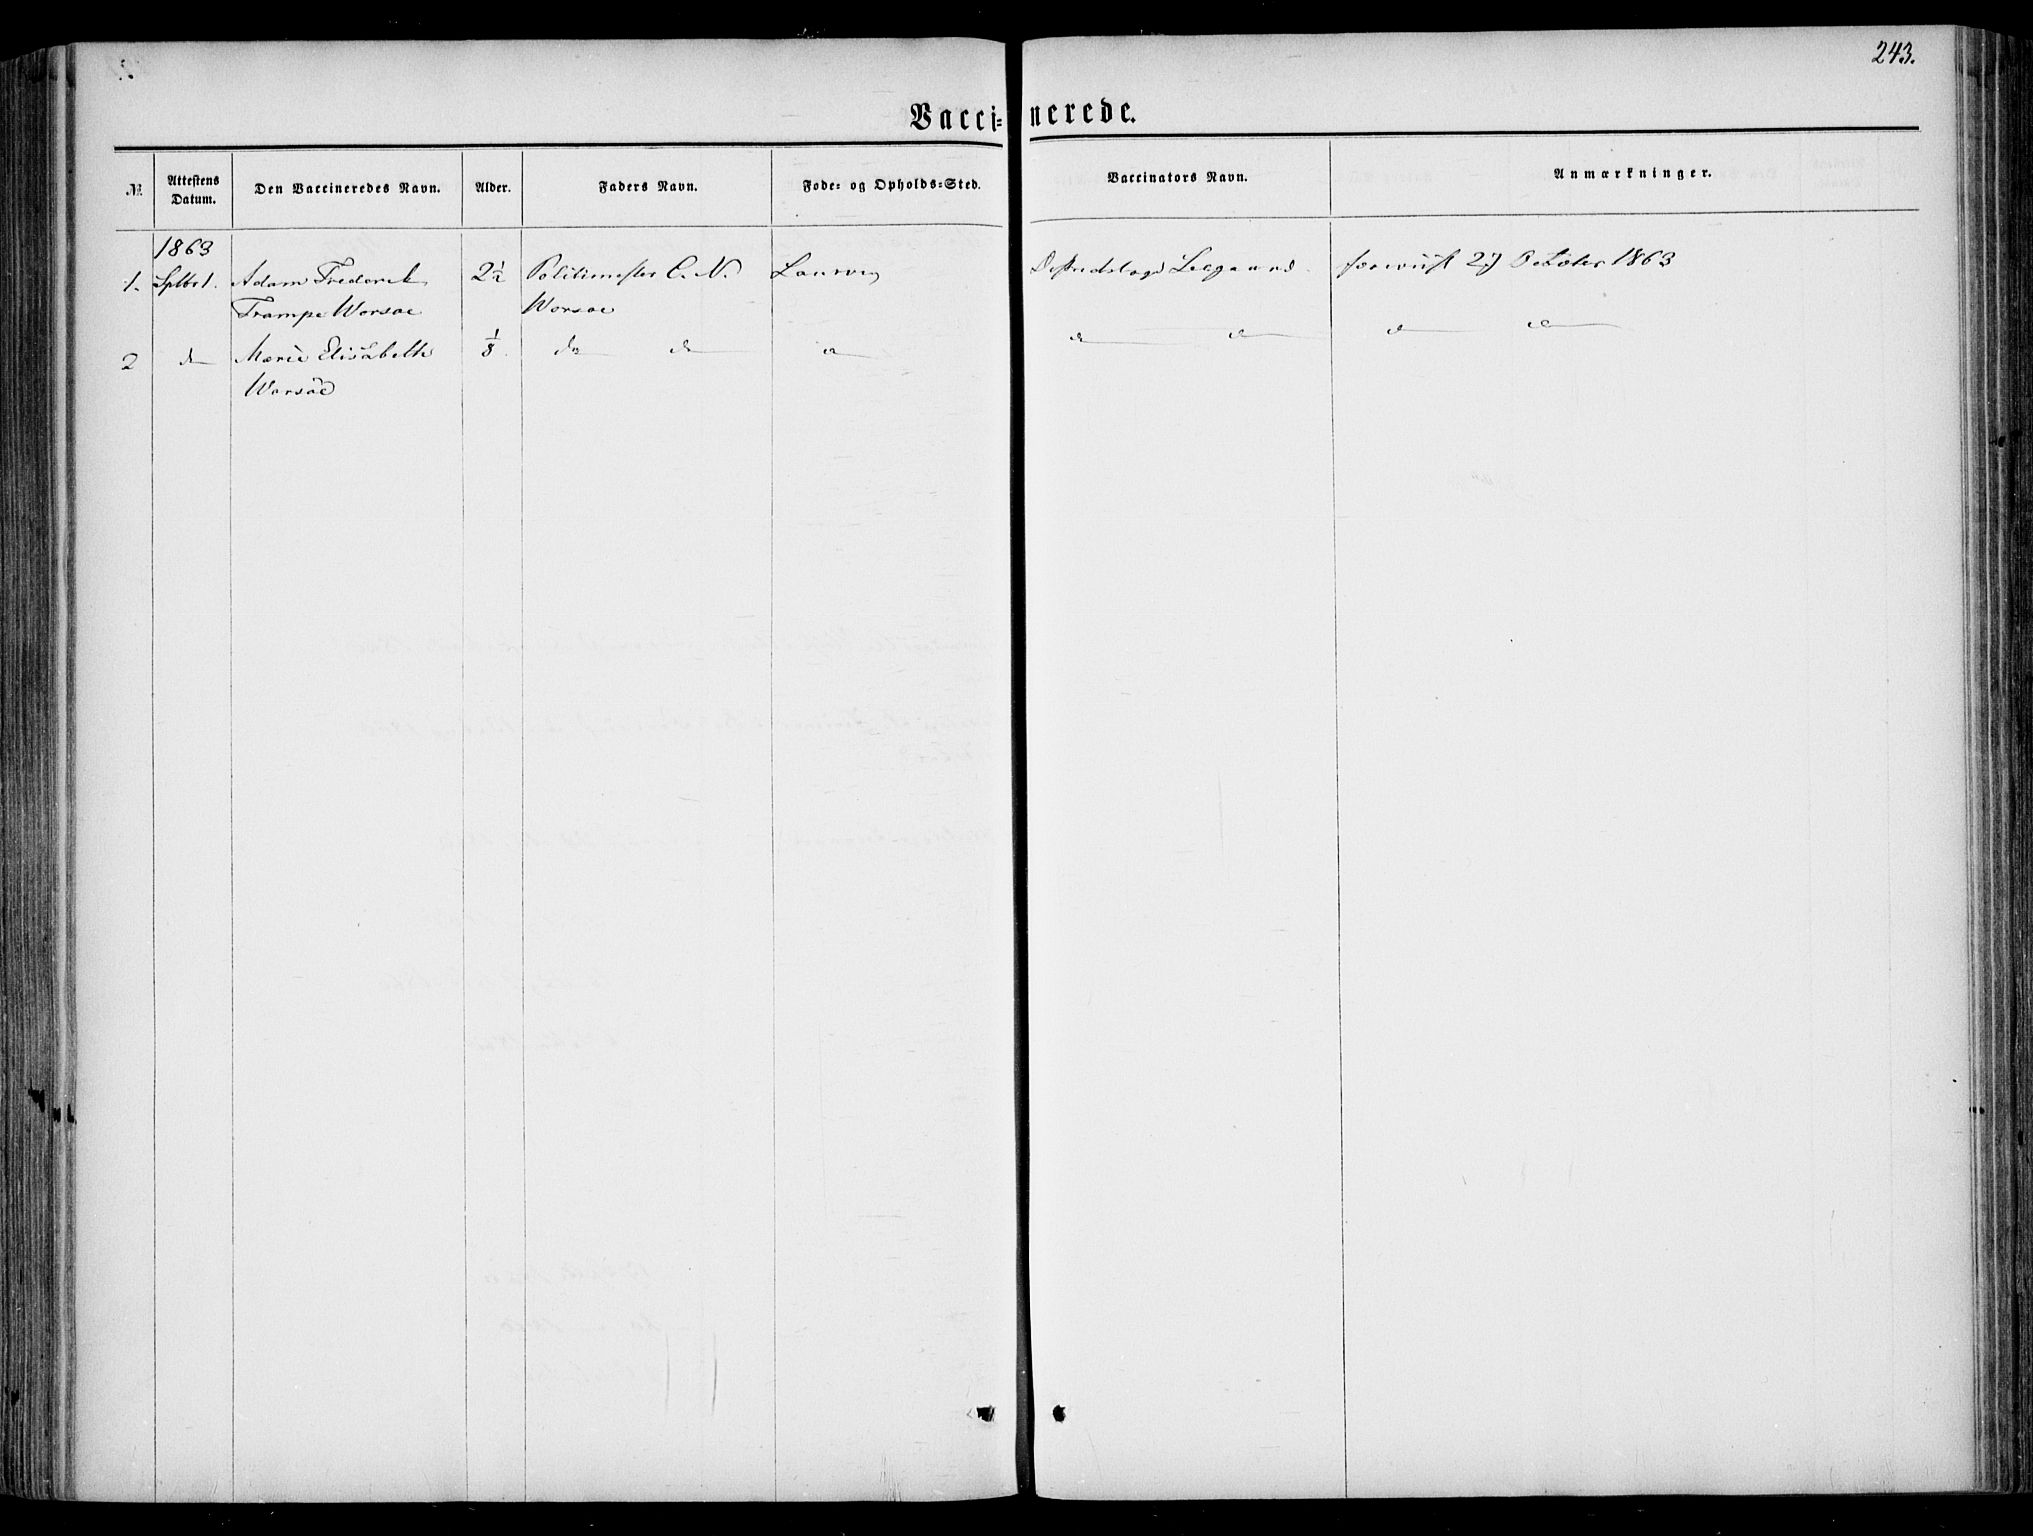 243.
Vacci=nerede.
№ Attestens Datum. Den Vaccineredes Navn. Alder. Faders Navn. Føde= og Opholds=Sted. Vaccinators Navn. Anmærkninger.
1863
1. Sptbr 1. Adam Frederik 2½ Politimester C. N. Laurvig Lesgaard. forevist 27 October 1863
Trampe Worsøe Worsøe
2 do Marie Elisabeth ⅛. do do do do do do do
Worsøe